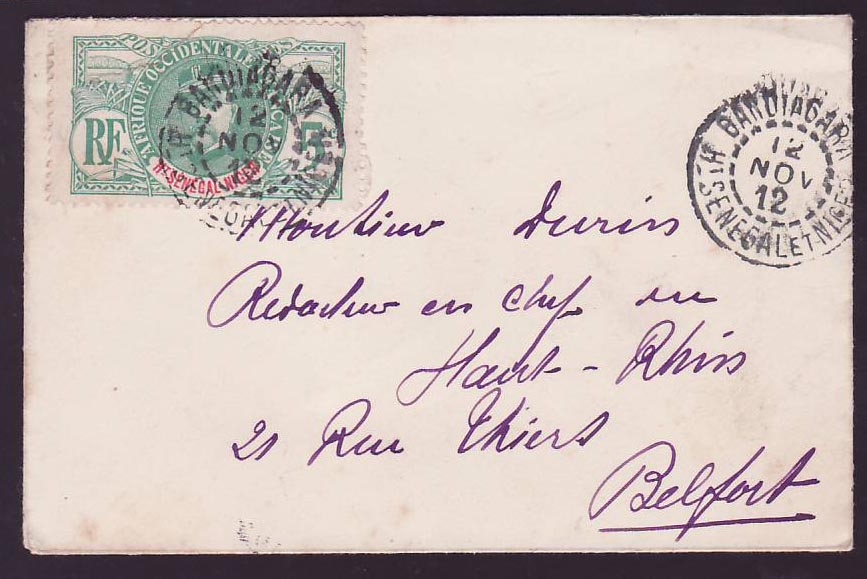 POSTES
AFRIQUE OCCIDENTALE FRANÇAISE
RF
5
Ht SENEGAL-NIGER
BANDIAGARA
12
NOV
Ht SENEGAL ET NIGER
BANDIAGARA
12
NOV
12
Ht SENEGAL ET NIGER
Monsieur Durin
Rédacteur en chef du
Haut-Rhin
21 Rue Thiers
Belfort